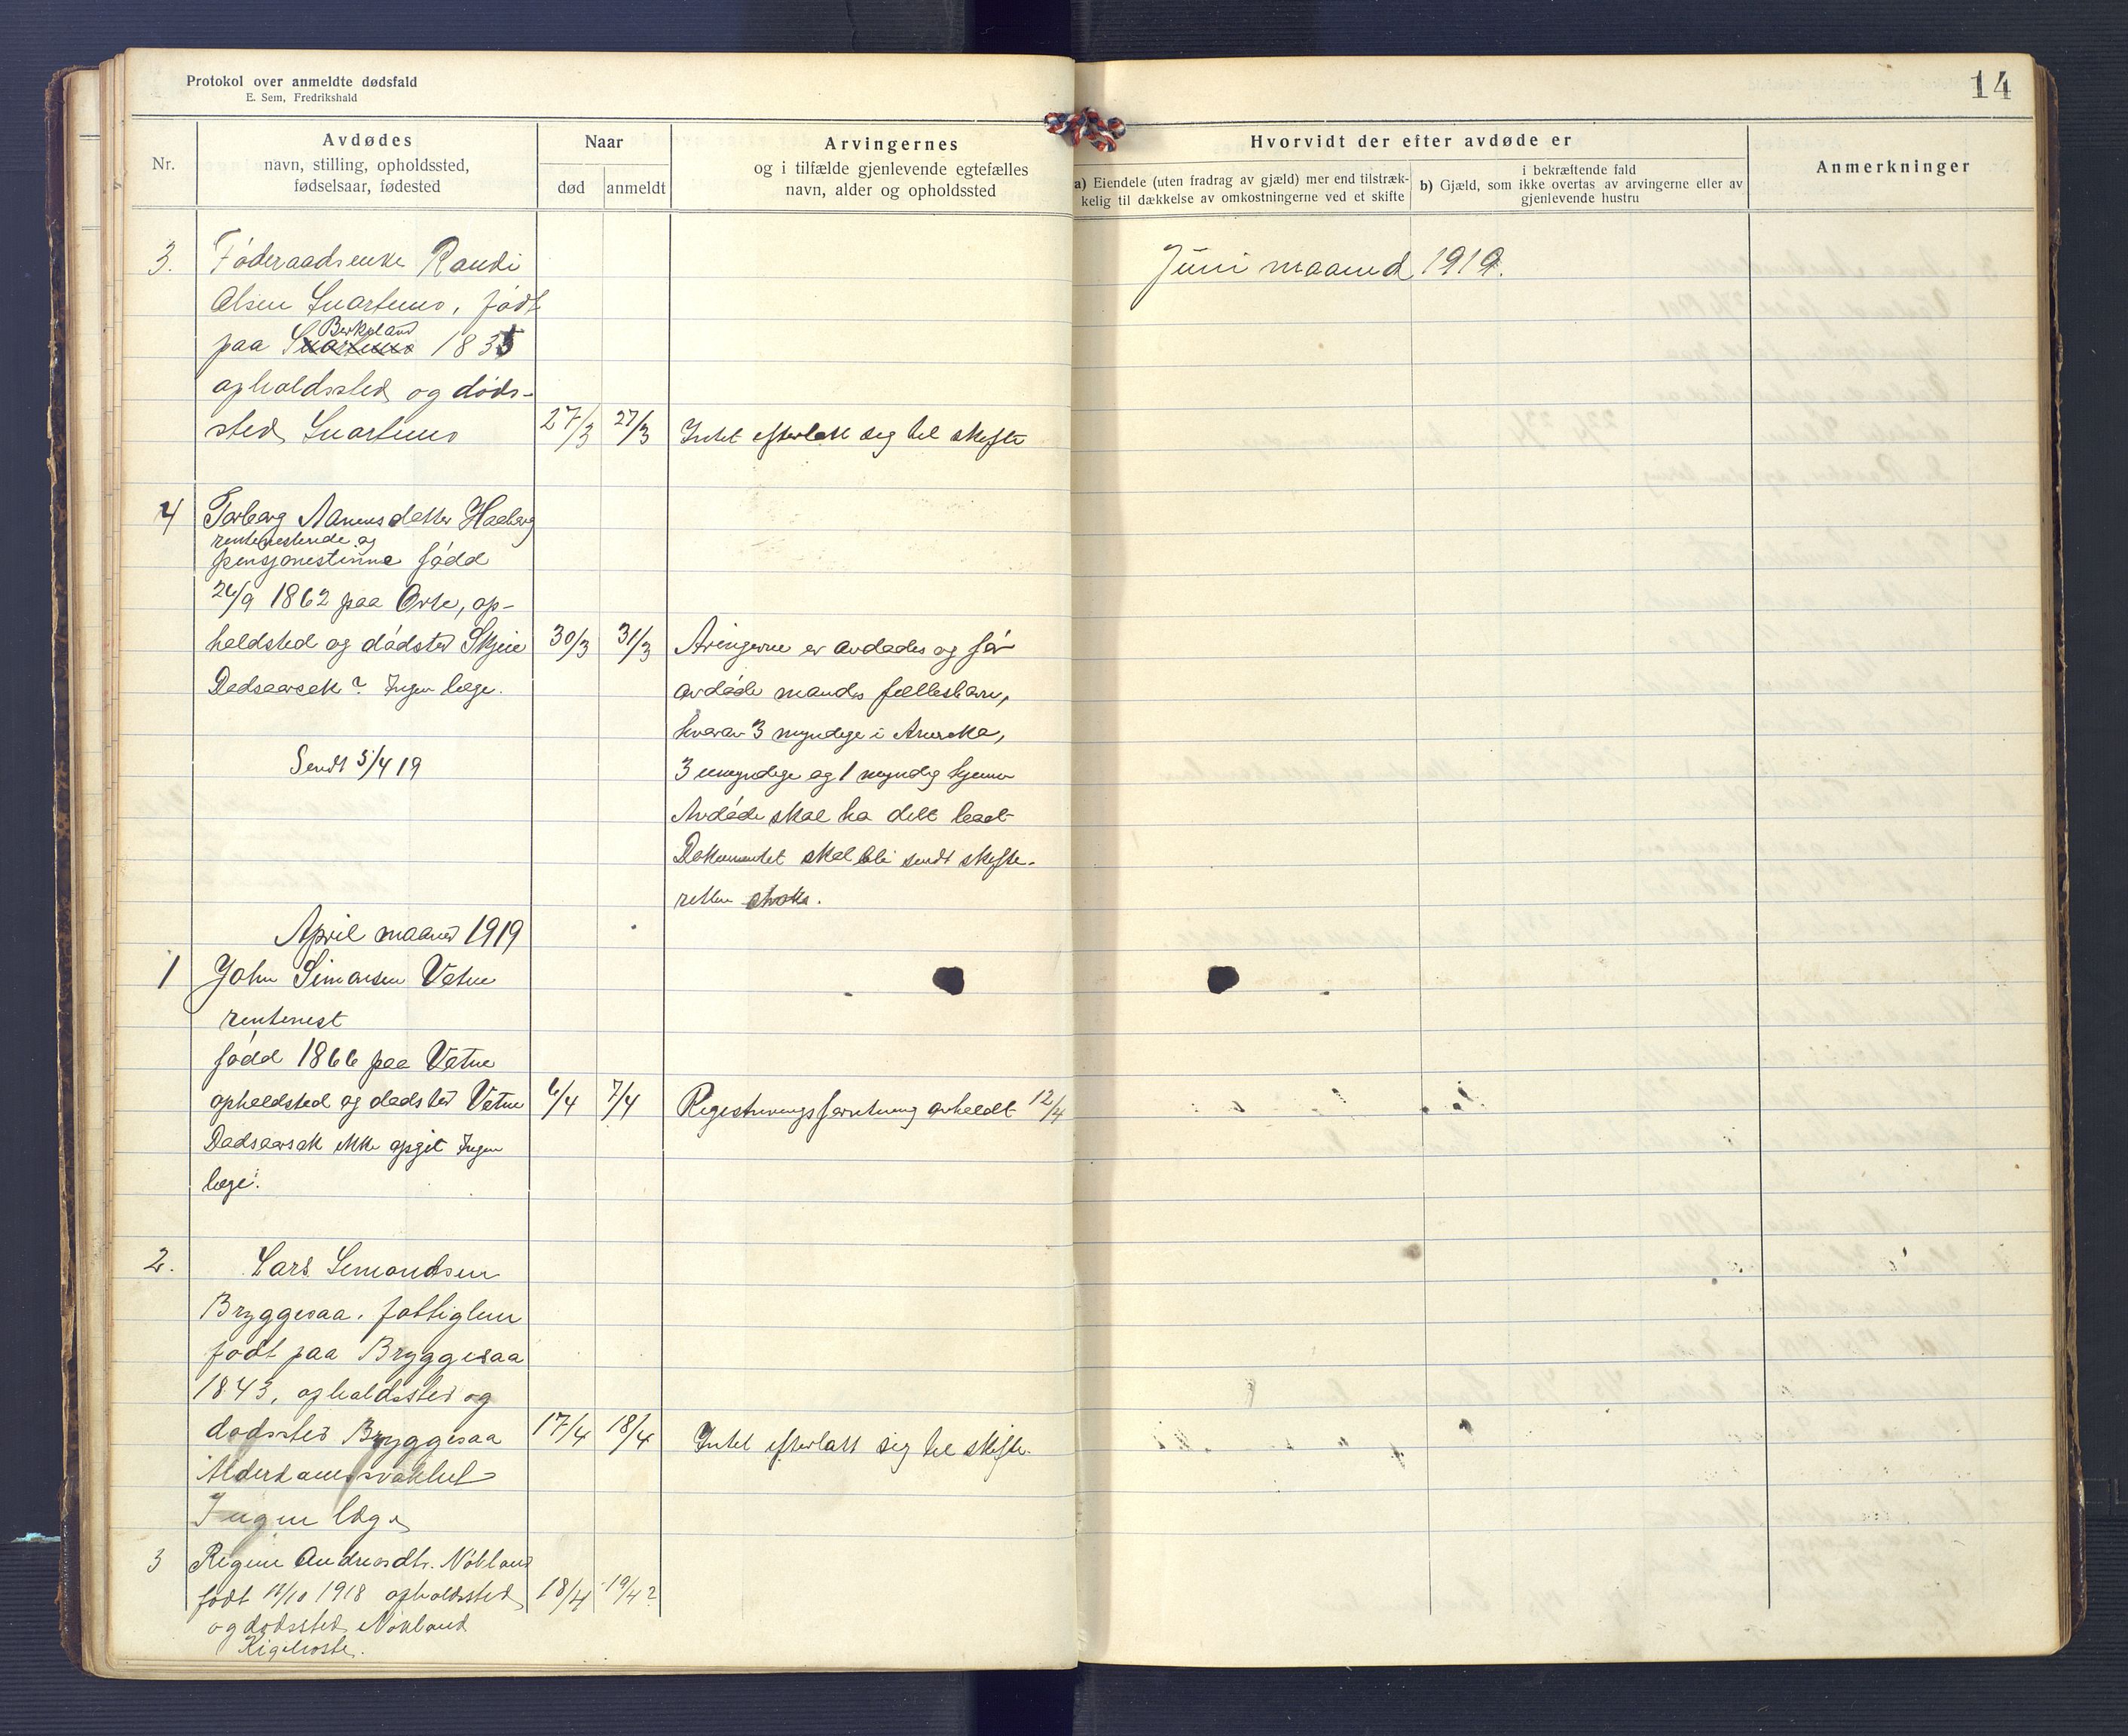 Protokol over anmeldte dødsfald
E. Sem, Fredrikshald
14
Nr.
Avdødes
navn, stilling, opholdssted,
fødselsaar, fødested
Naar
død
anmeldt
Arvingernes
og i tilfælde gjenlevende egtefælles
navn, alder og opholdssted
Hvorvidt der efter avdøde er
a) Eiendele (uten fradrag av gjæld) mer end tilstræk-
kelig til dækkelse av omkostningerne ved et skifte
i bekræftende fald
b) Gjæld, som ikke overtas av arvingerne eller av
gjenlevende hustru
Anmerkninger
3. Føderaadsenke Randi
Olsen Snartemo, født
Berkeland
paa Snartemo 1835
opholdssted og døds-
sted Snartemo 27/3 27/3 Intet efterlatt sig til skifte
4 Torborg Aanensdatter Haaberg
og
pensjonestinne født
26/9 1862 paa Orte, op-
holdsted og dødsted Skjeie 30/3 31/3 Arvingerne er avdødes og før
Dødsaarsak? Ingen læge. avdøde mands fællesbarn,
hvorav 3 myndige i Amerika,
Sendt 5/4 19
3 umyndige og 1 myndig hjemme
Avdøde skal ha delt boet
Dokumentet skal bli sendt skifte-
retten straks.
April maaned 1919
1 John Simonsen Vatne
rentenest
født 1866 paa Vatne
opholdsted og dødsted Vatne 6/4 7/4 Registreringsforretning avholdt 12/4
Dødsaarsak ikke opgit Ingen
læge.
2. Lars Simondsen
Bryggesaa, fattiglem
født paa Bryggesaa
1843, opholdssted og
dødssted Bryggesaa 17/4 18/4 Intet efterlatt sig til skifte.
Alderdomssvakhet
Ingen læge
3 Regine Andreasdtr. Nøkland
født 12/10 1918 opholdssted 18/4 19/4?
og dødssted Nøkland
Kighoste.
Juni maaned 1919.